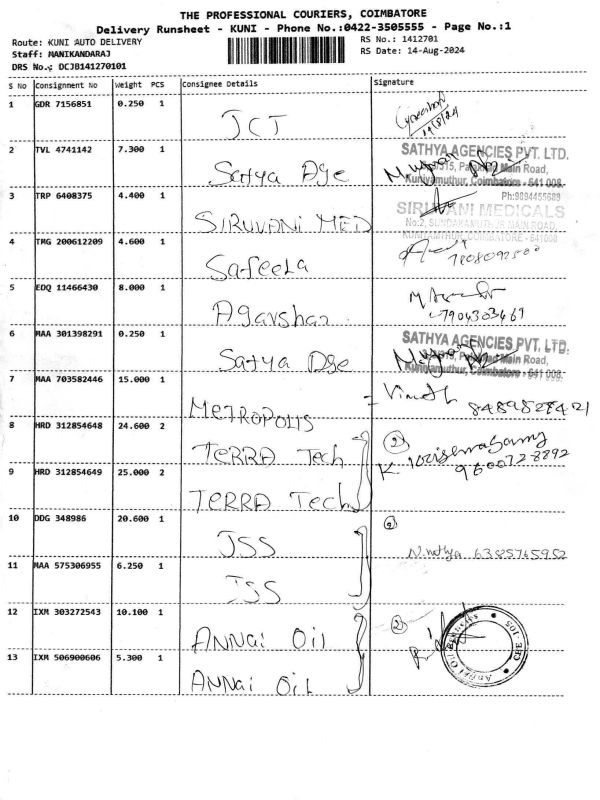 THE PROFESSIONAL COURIERS, COIMBATORE
Delivery Runsheet - KUNI - Phone No.:0422-3505555 - Page No.:1
Route: KUNI AUTO DELIVERY
RS No.: 1412701
Staff: MANIKANDARAJ
RS Date: 14-Aug-2024
DRS No.: DCJB141270101
S No Consignment No Weight PCS Consignee Details Signature
1 GDR 7156851 0.250 1 JCT
2 TVL 4741142 7.300 1 Satya Age
SATHYA AGENCIES PVT. LTD.
Main Road,
Kuniyamuthur, Coimbatore - 641 008.
3 TRP 6408375 4.400 1 SIRUVANI MED
Ph:9894455689
SIRUVANI MEDICALS
MAIN ROAD,
KUNIYAMUTHUR, COIMBATORE - 641008
4 TMG 200612209 4.600 1 Safeela
5 EDQ 11466430 8.000 1 Agarshan
7904303461
6 MAA 301398291 0.250 1 Satya Age
SATHYA AGENCIES PVT. LTD.
Main Road,
Kuniyamuthur, Coimbatore - 641 008.
7 MAA 703582446 15.000 1 METROPOLIS
= Vinoth 8489828421
8 HRD 312854648 24.600 2 TERRA Tech
2 K. Krishnasamy
9600728892
9 HRD 312854649 25.000 2 TERRA Tech
10 DDG 348986 20.600 1 JSS
2
N. nithya 6385765952
11 MAA 575306955 6.250 1 JSS
12 IXM 303272543 10.100 1 ANNAI OIL
2
13 IXM 506900606 5.300 1 ANNAI OIL